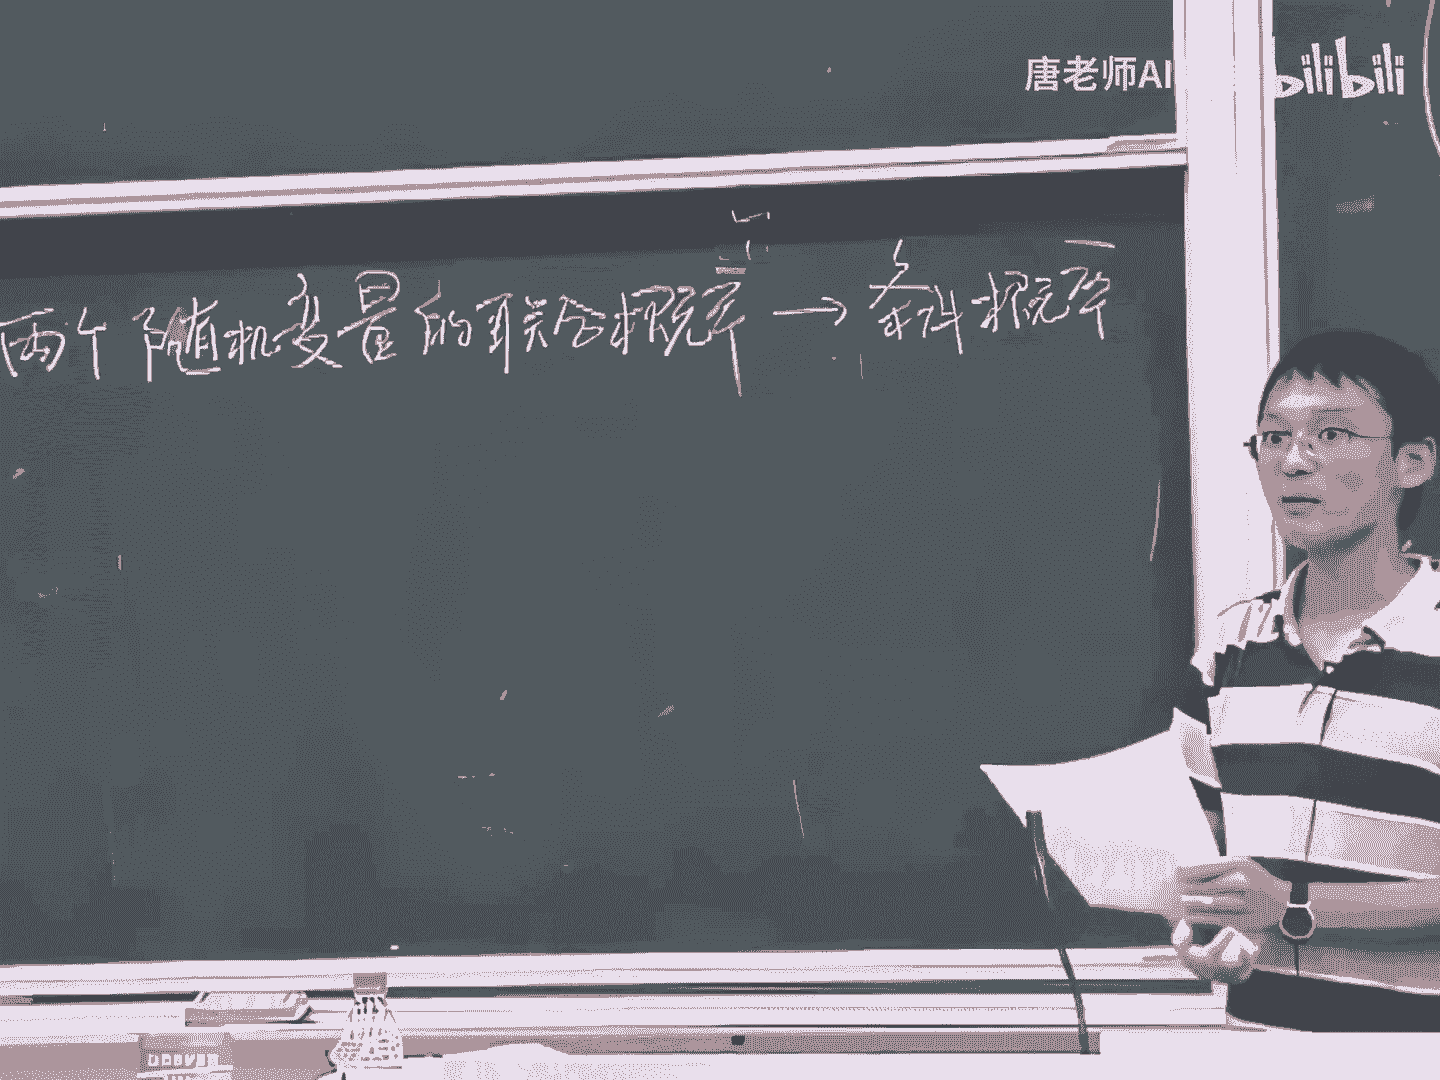 唐老师AI bilibili
两个随机变量的联合概率 → 条件概率